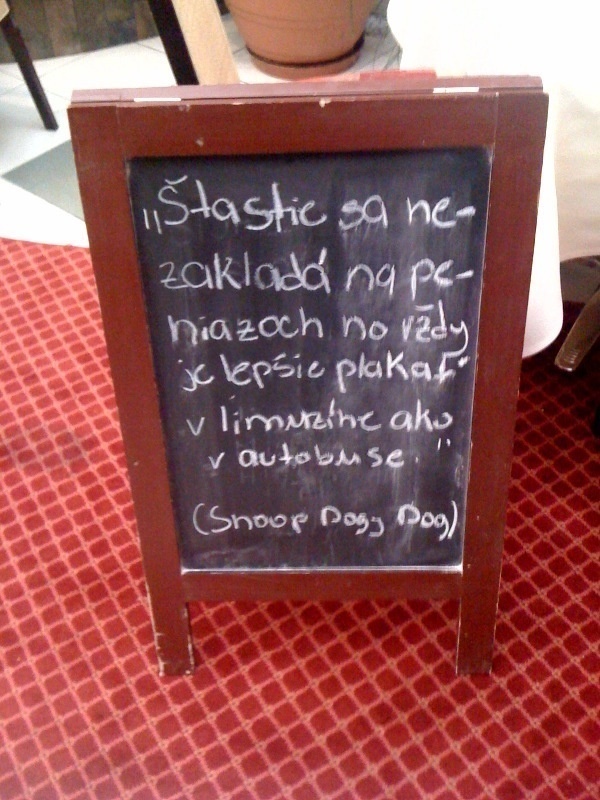 „Štastie sa ne-
zakladá na pe-
niazoch no vždy
je lepšie plakať
v limuzíne ako
v autobuse."
(Snoop Dogy Dog)